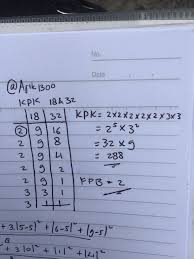 No.
Date
@Afik1300
KPK 18 & 32
18 32
2 9 16
2 9 8
2 9 4
2 9 2
2 9 1
3 3 1
3 1
KPK = 2x2x2x2x2x3x3
= 2⁵ x 3²
= 32 x 9
= 288
FPB = 2
+ 3(5-5)² + (6-5)² + (9-5)²
+ 3(0)² + (1)² + (4)²